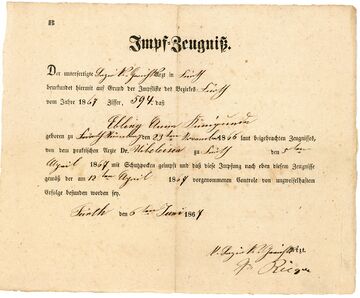 Impf-Zeugniß.
Der unterfertigte Bezirks-Gerichtsarzt in Fürth
beurkundet hiermit auf Grund der Impfliste des Bezirkes Fürth
vom Jahre 1867 Ziffer, 594, daß
Ebling Anna Kunigunda
geboren zu Fürth den 23ten November 1866 laut beigebrachten Zeugnisses,
von dem praktischen Arzte Dr. zu Fürth den 5ten
April 1867 mit Schutzpocken geimpft und daß diese Impfung nach eben diesen Zeugnisse
gemäß der am 12ten April 1867 vorgenommenen Controle von unzweifelhaftem
Erfolge befunden worden sey.
Fürth den 6ten Juni 1867